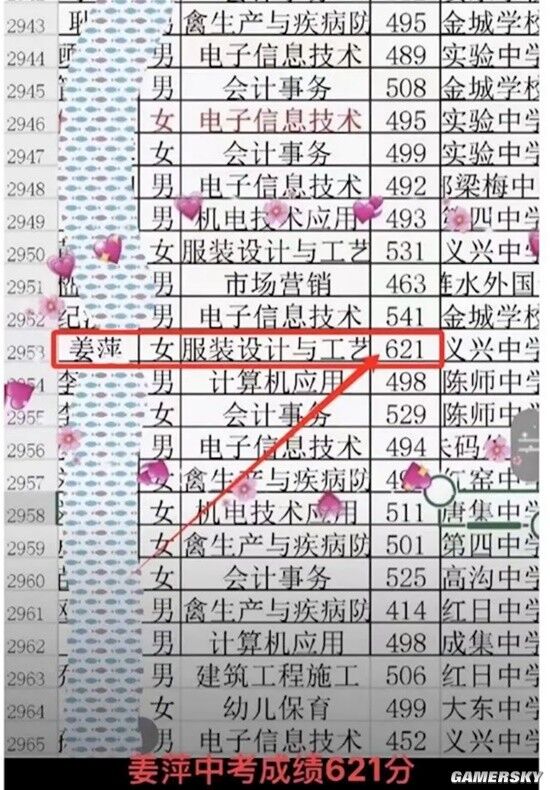 2943 男 禽生产与疾病防 495 金城学校
2944 男 电子信息技术 489 实验中学
2945 男 会计事务 508 金城学校
2946 女 电子信息技术 495 实验中学
2947 女 会计事务 499 实验中学
2948 男 电子信息技术 492 梁梅中
2949 男 机电技术应用 493 第四中学
2950 女 服装设计与工艺 531 义兴中学
2951 男 市场营销 463 涟水外国
2952 纪 男 电子信息技术 541 金城学校
2953 姜萍 女 服装设计与工艺 621 义兴中学
2954 李 男 计算机应用 498 陈师中学
2955 李 女 会计事务 529 陈师中学
2956 男 电子信息技术 494 朱码
2957 女 禽生产与疾病防 窑中学
2958 女 机电技术应用 511 唐集中学
2959 女 禽生产与疾病防 501 第四中学
2960 女 会计事务 525 高沟中学
2961 男 禽生产与疾病防 414 红日中学
2962 男 计算机应用 498 成集中学
2963 男 建筑工程施工 506 红日中学
2964 女 幼儿保育 499 大东中学
2965 男 电子信息技术 452 义兴中学
姜萍中考成绩621分
GAMERSKY